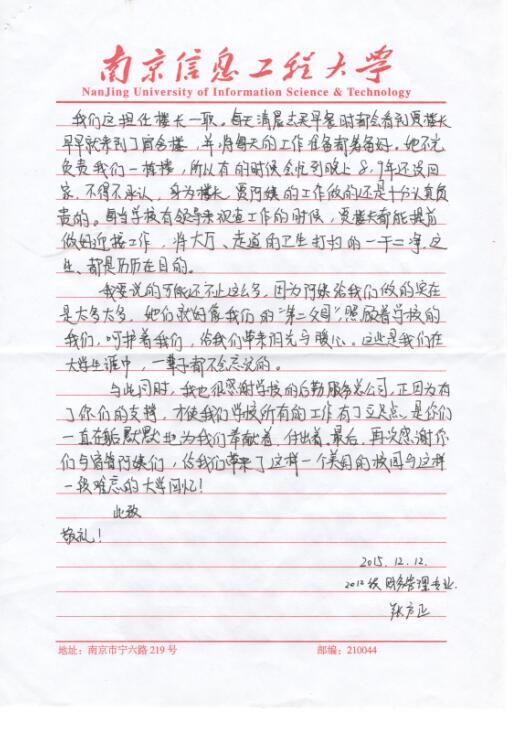 南京信息工程大学
NanJing University of Information Science & Technology
我们这担任楼长一职。每天清晨去买早餐时都会看到贾楼长
早早就来到了宿舍楼，并将每天的工作准备都着备好。她不光
负责我们一栋楼，所以有的时候会忙到晚上8、9点还没回
家。不得不承认，身为楼长，贾阿姨的工作做的还是十分认真负
责的。每当学校有领导来视查工作的时候，贾楼长都能提前
做好迎接工作，将大厅、走道的卫生打扫的一干二净。这
些，都是历历在目的。
我要说的可能还不止这么多，因为阿姨给我们做的实在
是太多太多，她们就好像我们的“第二父母”，照顾着学校的
我们，呵护着我们，给我们带来阳光与暖心。这些是我们在
大学生涯中，一辈子都不会忘记的。
与此同时，我也很感谢学校的后勤服务总公司，正因为有
了你们的支持，才使我们学校所有的工作有了立足点。是你们
一直在后默默地为我们奉献着，付出着。最后，再次感谢你
们与宿管阿姨们，给我们带来了这样一个美丽的校园与这样
一段难忘的大学回忆！
此致
敬礼！
2015.12.12.
2012级财务管理专业.
张方正
地址：南京市宁六路219号 邮编：210044